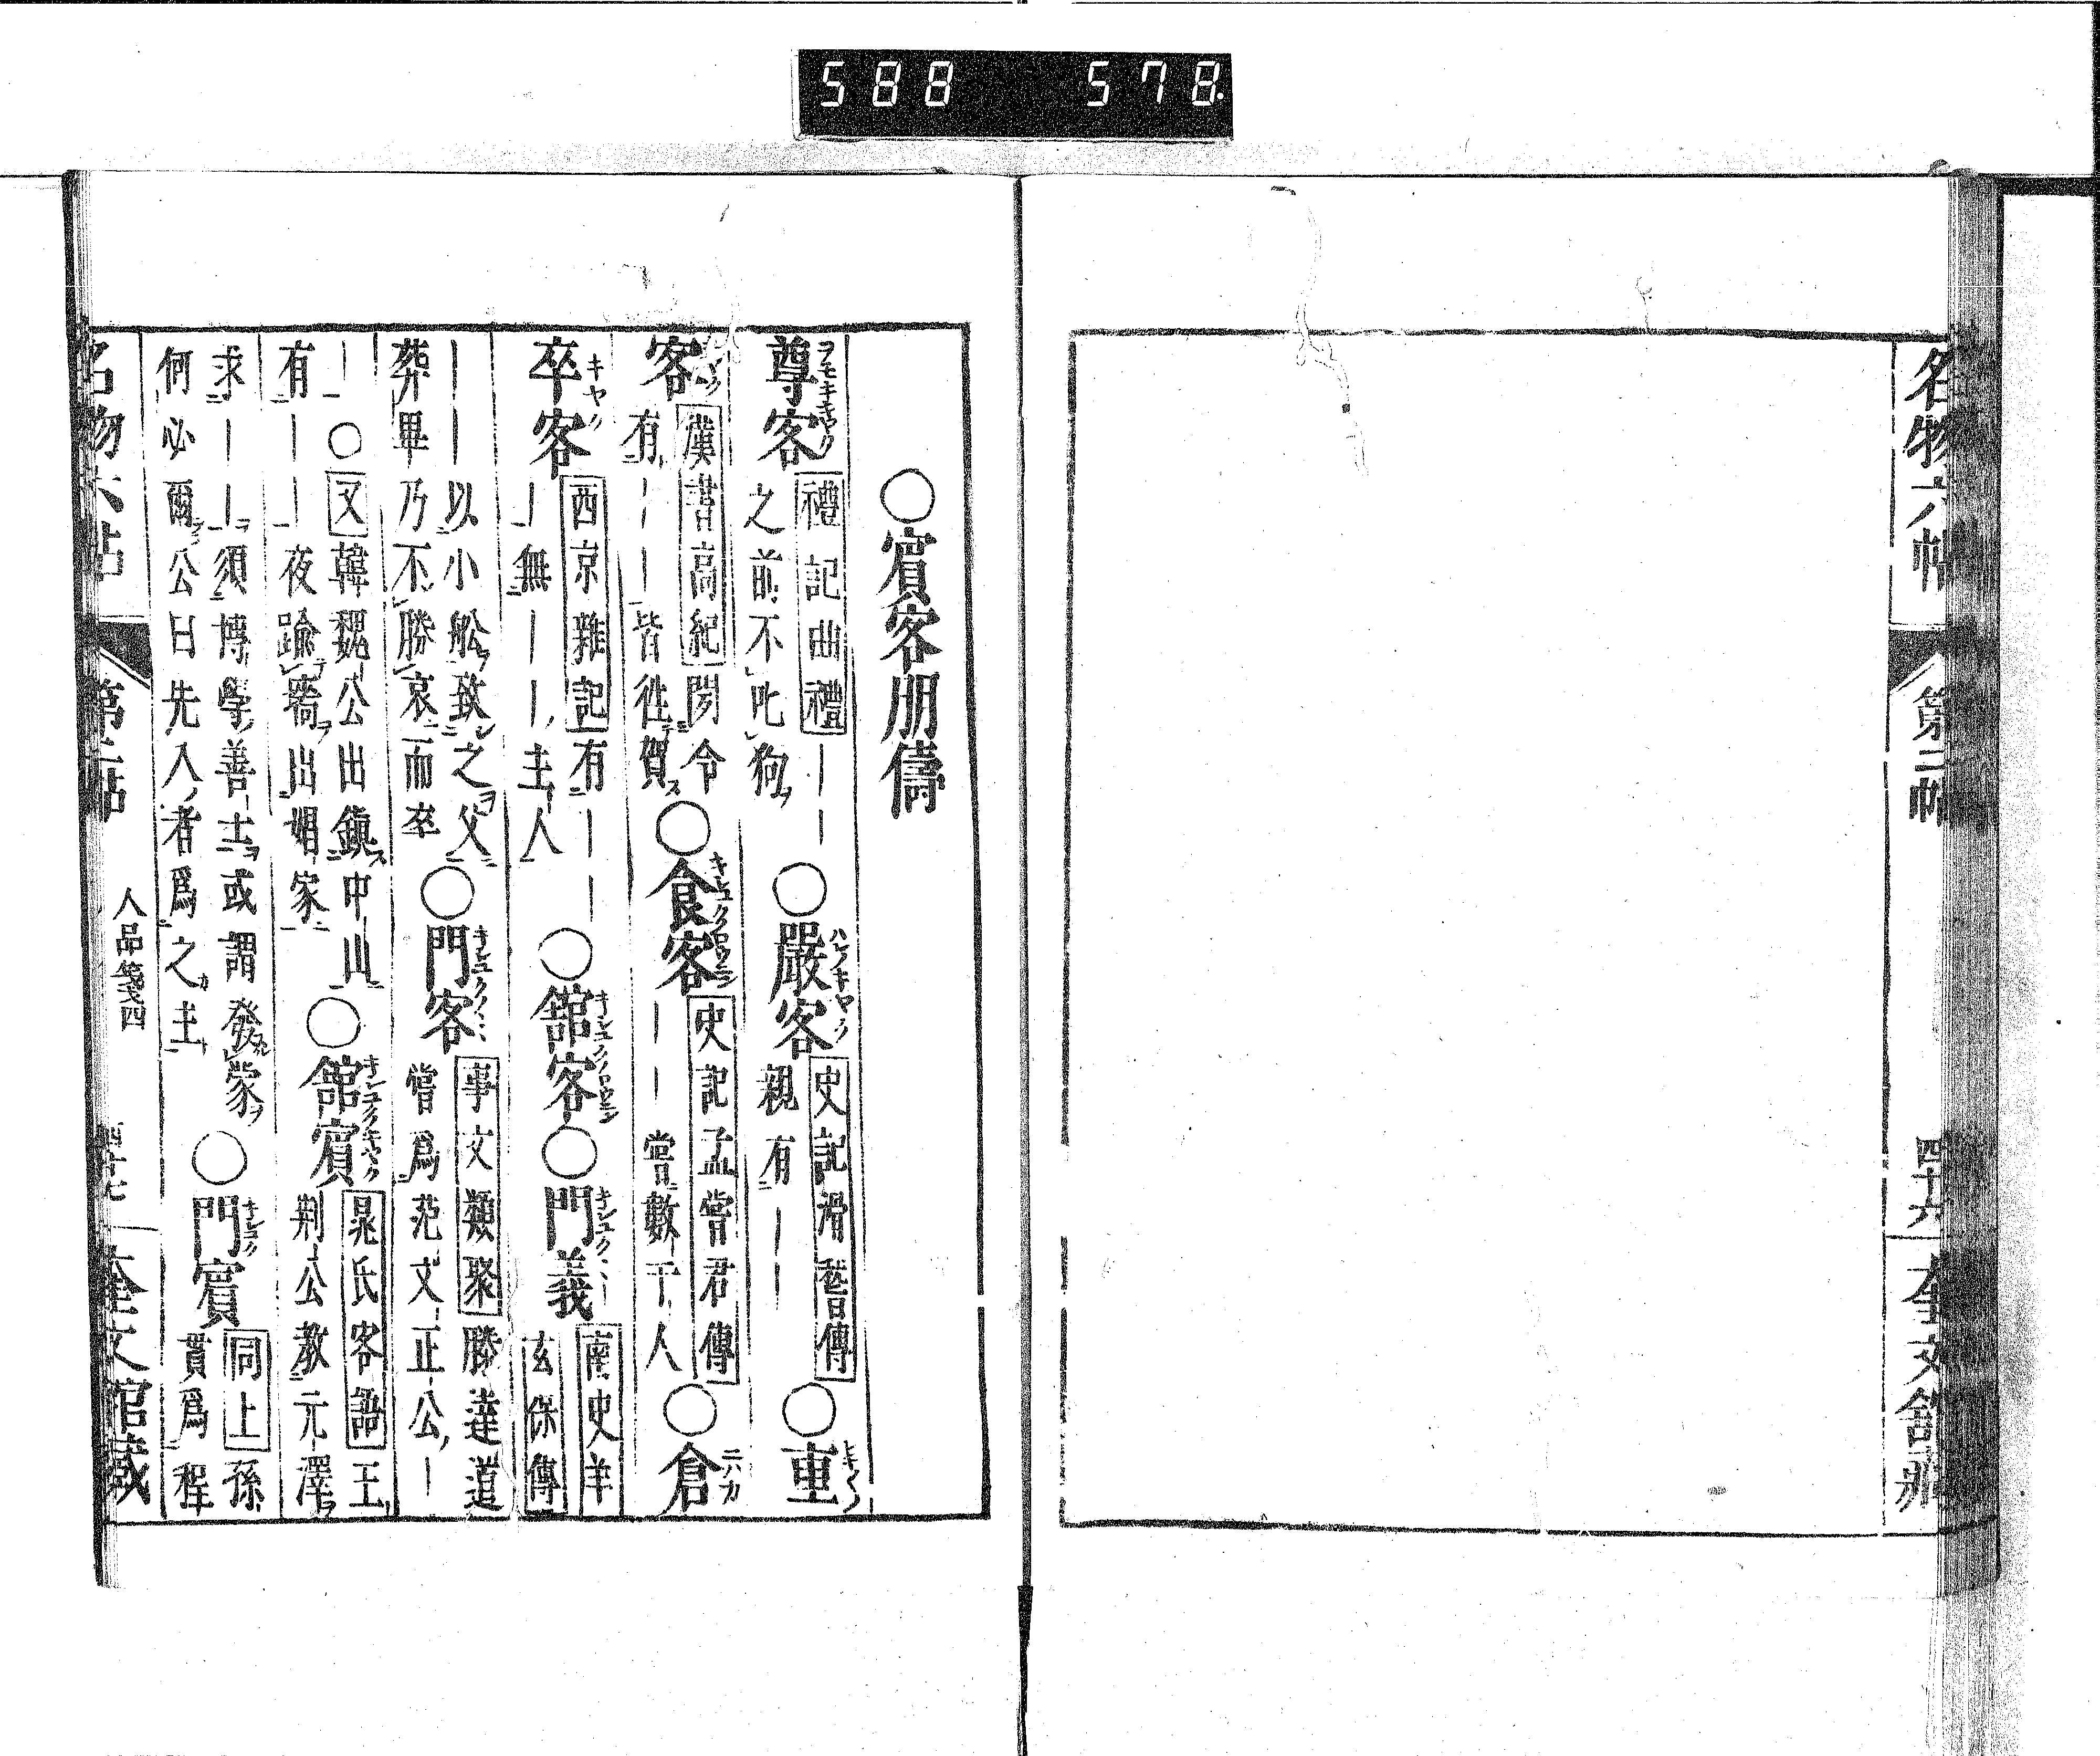 588 578
名物六帖 第二帖 四十六 奎文舘藏
○賓客朋儔
尊客 禮記曲禮——之前不叱狗 ○嚴客 史記滑稽傳親有—— ○重
客 漢書高紀閔令有———皆徃賀 ○食客 史記孟嘗君傳——當數千人 ○倉
卒客 西京雜記有———無——主人 ○舘客 ○門義 南史羊玄保傳
——以小舩致之父葬畢乃不勝哀而卒 ○門客 事文類聚滕達道嘗爲范文正公—
—○又韓魏公出鎮中山有——夜踰墻出娼家 ○舘賓 晁氏客語王荆公教元澤
求——須博學善士或謂發蒙何必爾公曰先入者爲之主 ○門賓 同上孫賁爲程
名物六帖 第二帖 人品箋四 四十七 奎文舘藏